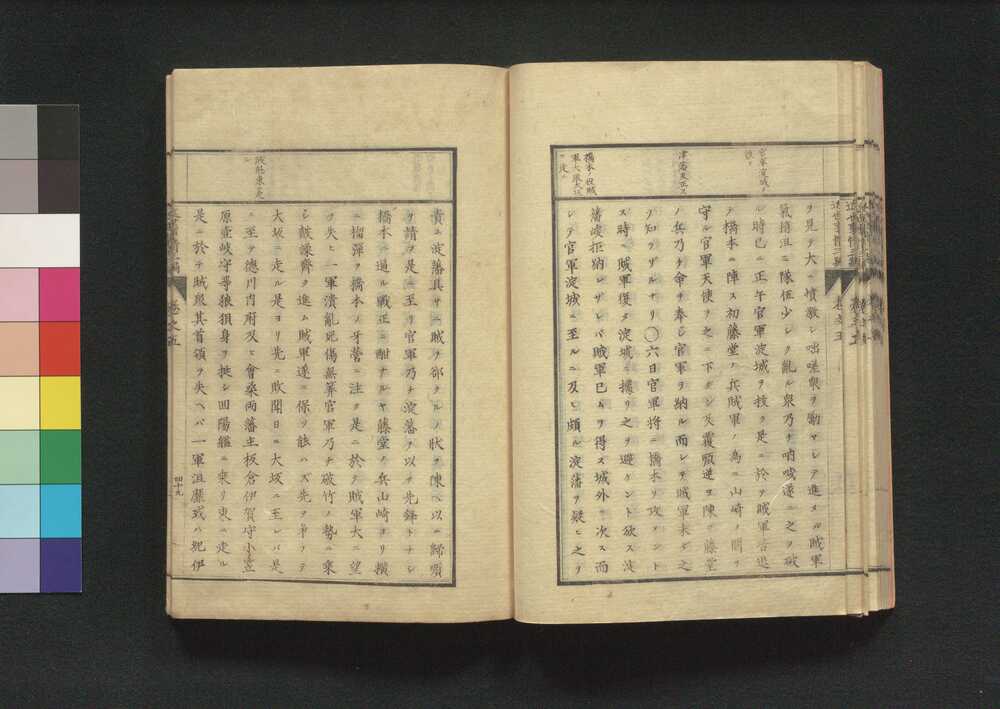 官軍淀城ヲ
抜ク
津藩反正ス
橋本ノ役賊
軍大敗大坂
ニ走ル
ヲ見テ大ニ憤激シ咄嗟衆ヲ勵マシテ進メル賊軍
氣稍沮ミ隊伍少シク亂ル衆乃チ吶喊遂ニ之ヲ破
ル時已ニ正午官軍淀城ヲ抜ク是ニ於テ賊軍皆退
テ橋本ニ陣ス初藤堂ノ兵賊軍ノ爲ニ山崎ノ關ヲ
守ル官軍天使ヲ之ニ下タシ反覆順逆ヲ陳ブ藤堂
ノ兵乃チ命ヲ奉シ官軍ヲ納ル而シテ賊軍未ダ之
ヲ知ラザルナリ〇六日官軍將ニ橋本リ攻メント
ス時ニ賊軍復タ淀城ニ據リ之ヲ避ケント欲ス淀
藩峻拒納レザレバ賊軍已ムヲ得ズ城外ニ次ス而
シテ官軍淀城ニ至ルニ及ビ頗ル淀藩ヲ疑ヒ之ヲ
近世事情二編
巻之五
賊魁東ニ走
ル
責ム淀藩具サニ賊ヲ郤クルノ狀ヲ陳ベ以テ歸順
ヲ請フ是ニ至リ官軍乃チ淀藩ヲ以テ先鋒トナシ
橋本ニ逼ル戰正ニ酣ナルヤ藤堂ノ兵山崎ヨリ横
ニ榴彈ヲ橋本ノ牙營ニ注ク是ニ於テ賊軍大ニ望
ヲ失ヒ一軍潰亂死傷無筭官軍乃チ破竹ノ勢ニ乘
シ鼓譟齊ク進ム賊軍遂ニ保ツ能ハズ先ヲ爭フテ
大坂ニ走ル是ヨリ先ニ敗聞日ニ大坂ニ至レバ是
ニ至テ德川内府及ヒ會桑兩藩主板倉伊賀守小笠
原壹岐守等狼狽身ヲ挺シ回陽艦ニ乘リ東ニ走ル
是ニ於テ賊衆其首領ヲ失ヘバ一軍沮靡或ハ紀伊
巻之五
四十九